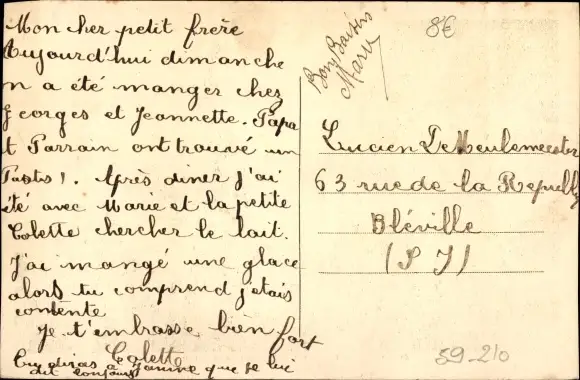 Mon cher petit frère
Aujourd'hui dimanche
n a été manger chez
Georges et Jeannette. Papa
t Parrain ont trouvé un
! Après diner j'ai
été avec Marie et la petite
Colette chercher le lait.
J'ai mangé une glace
alors tu comprend j'etais
contente
Je t'embrasse bien fort
Colette
Tu diras à Janine que je lui
dit bonjour
Bons Baisers
Marie
8€
Lucien DeMeulemeester
63 rue de la Republi
Bléville
(S I)
59-210